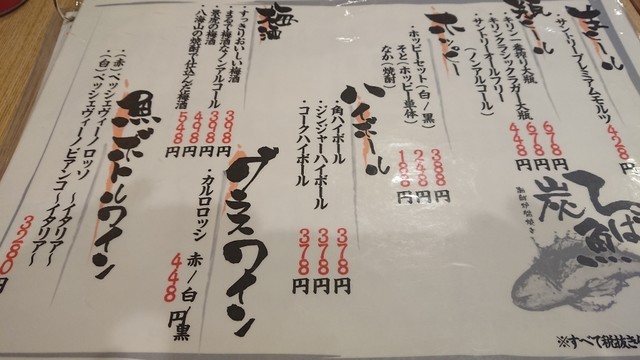 生ビール
・サントリープレミアムモルツ
428円
瓶ビール
・キリン一番搾り大瓶
678円
・キリンクラシックラガー大瓶
678円
・サントリーオールフリー
(ノンアルコール)
448円
ホッピー
・ホッピーセット(白/黒)
388円
そと(ホッピー単体)
248円
なか(焼酎)
188円
ハイボール
・角ハイボール
378円
・ジンジャーハイボール
378円
・コークハイボール
378円
梅酒
・すっきりおいしい梅酒
398円
・まるで梅酒なノンアルコール
398円
の梅酒
498円
・八海山の焼酎で仕込んだ梅酒
548円
グラスワイン
・カルロロッシ 赤/白/黒
448円
ボトルワイン
・(赤)ペッシェヴィーノロッソ 〜イタリア〜
・(白)ペッシェヴィーノビアンコ 〜イタリア〜
3280円
炭
魚
※すべて税抜き